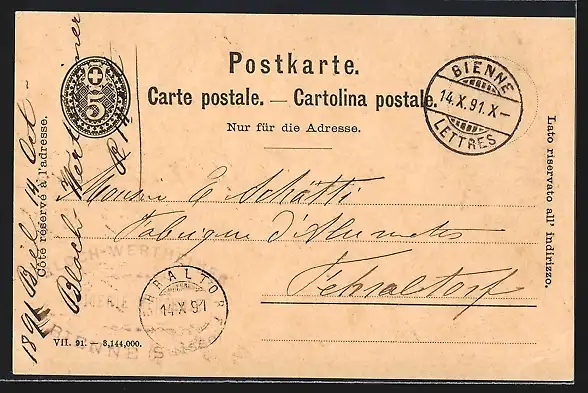 Postkarte.
Carte postale. — Cartolina postale.
Nur für die Adresse.
5
BIENNE
14.X.91.X—
LETTRES
Côté réservé à l'adresse.
Lato riservato all' indirizzo.
1891 Biel 14 Oct.
Bloch Wertheimer
Monsieur E Schätti
Fabrique d'Allumettes
Fehraltorf
FEHRALTORF
14.X.91
BLOCH-WERTHEIMER
BIENNE (Suisse)
VII. 91. — 3,144,000.